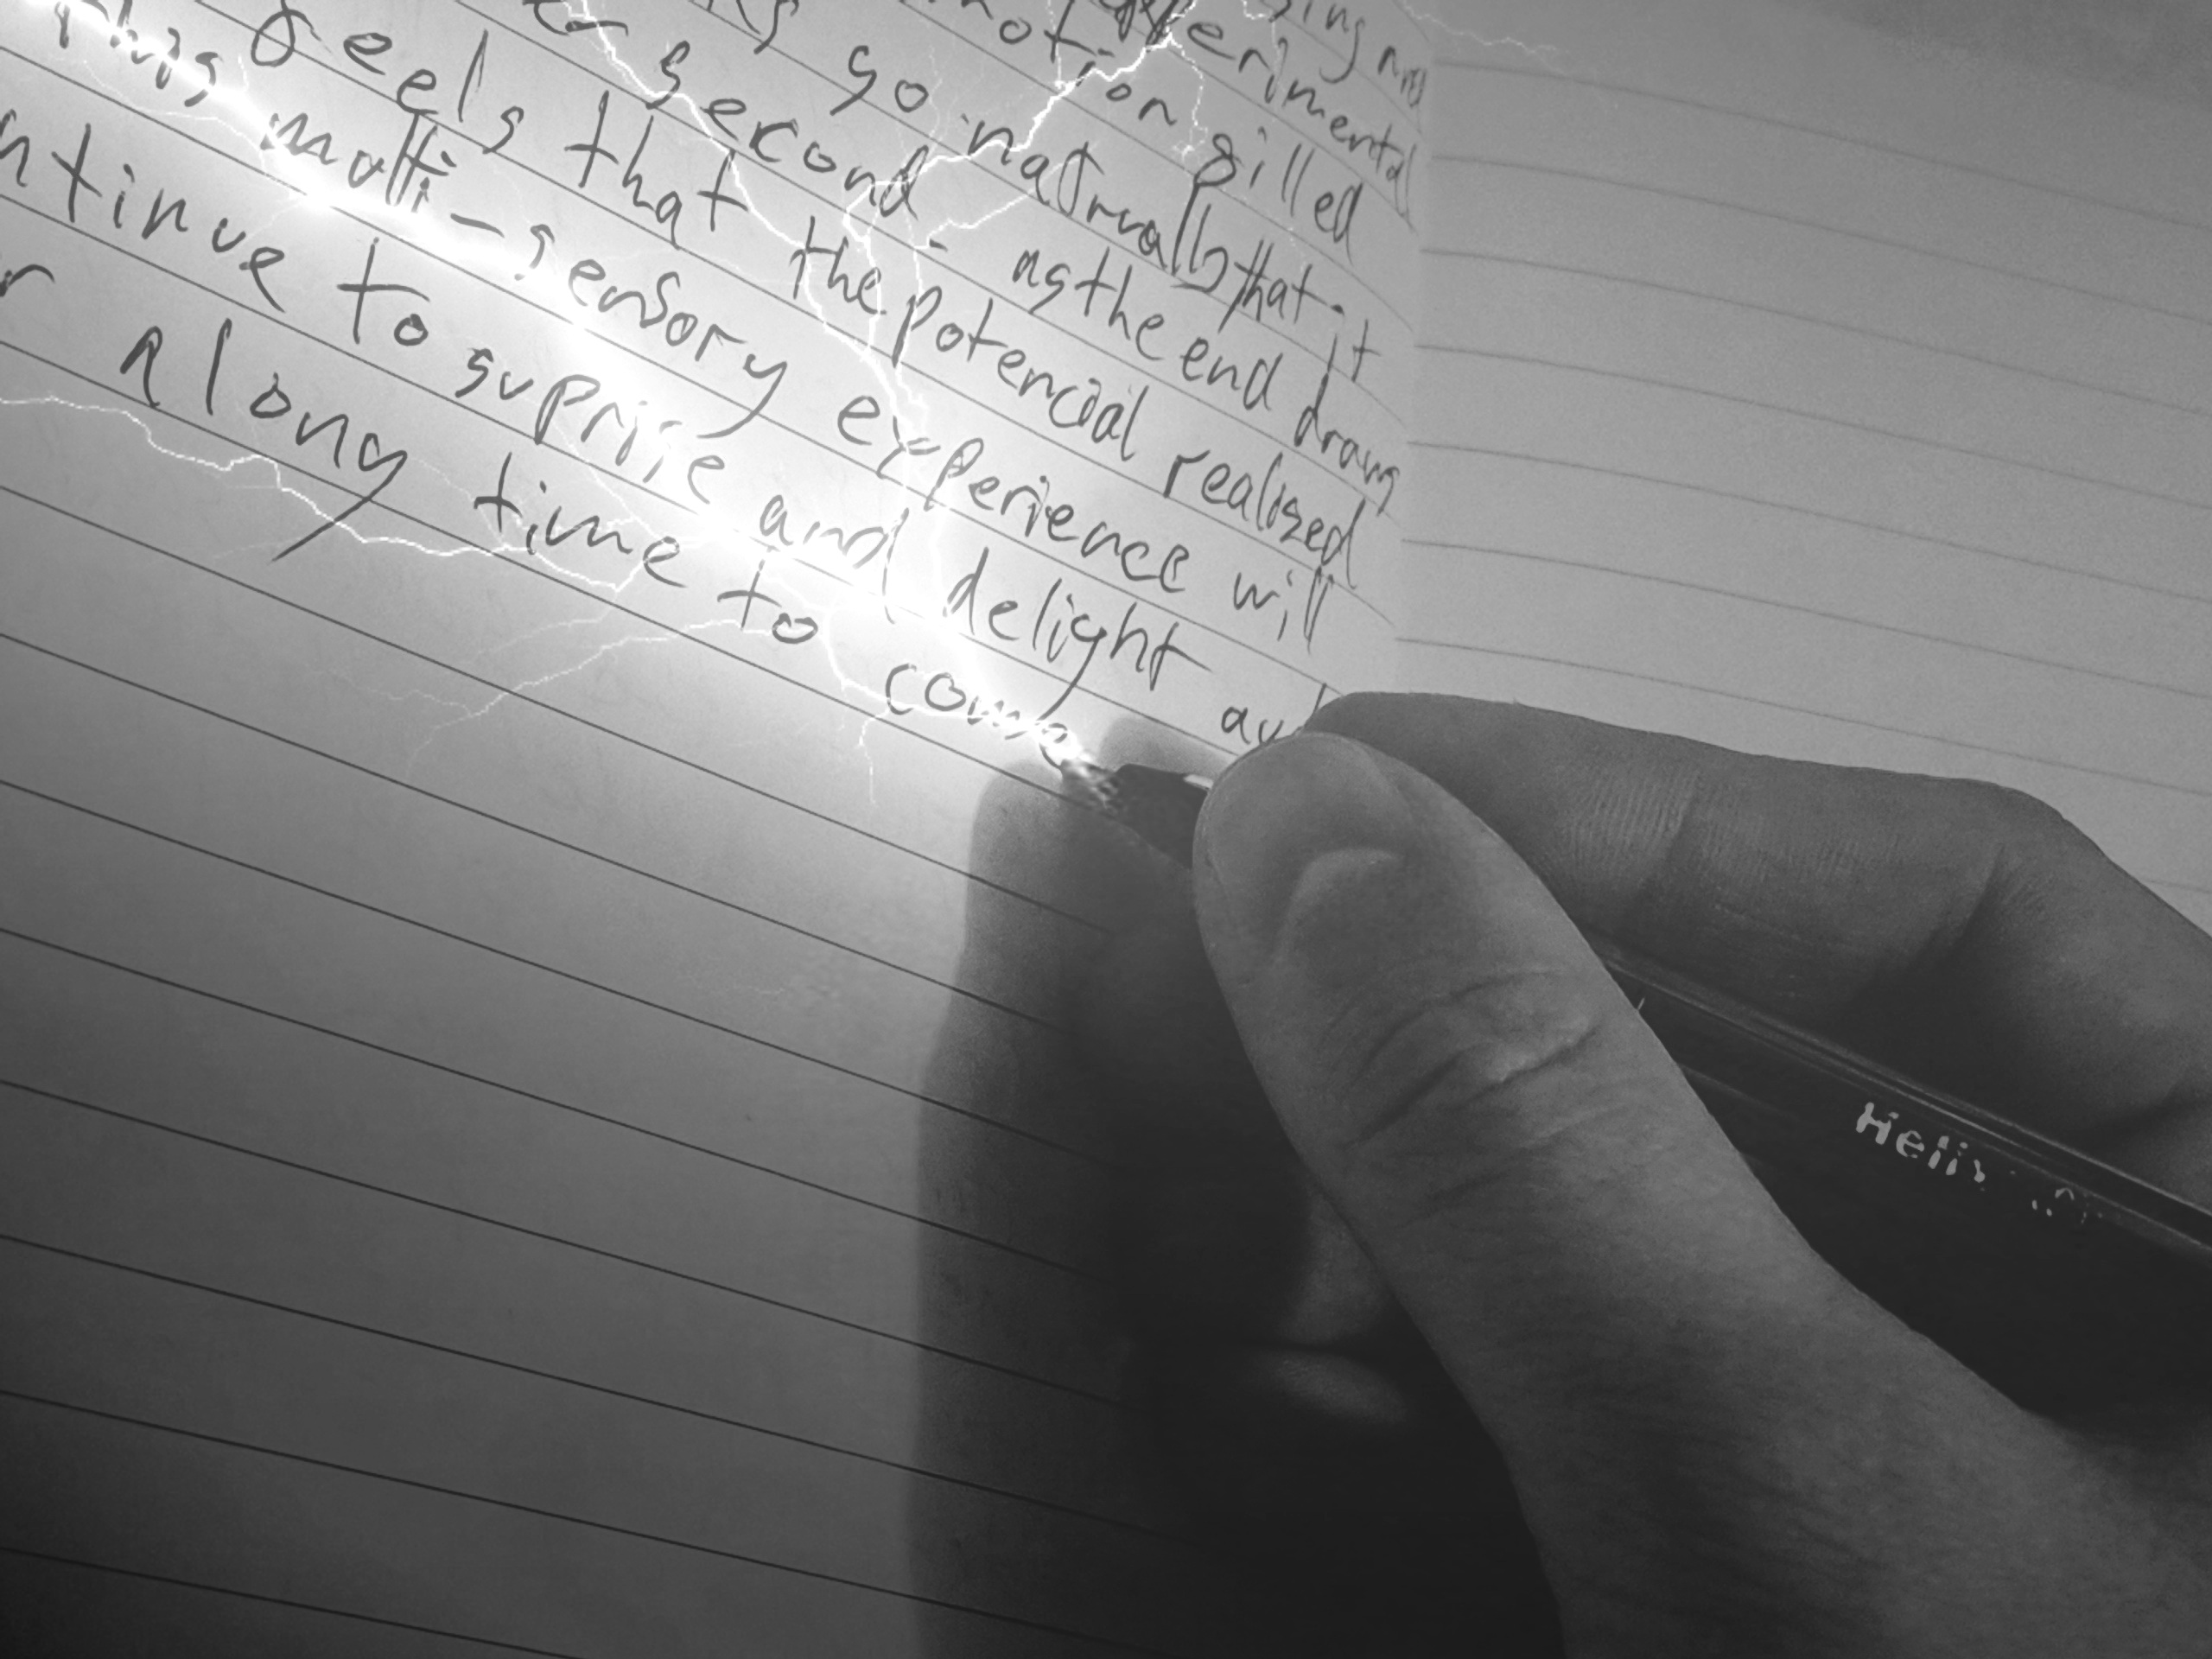 sing
experimental
motion filled
so naturally that - it
second - as the end draws
feels that the potencial realized
this multi-sensory experience will
ntinue to suprise and delight
r a long time to come
Helix